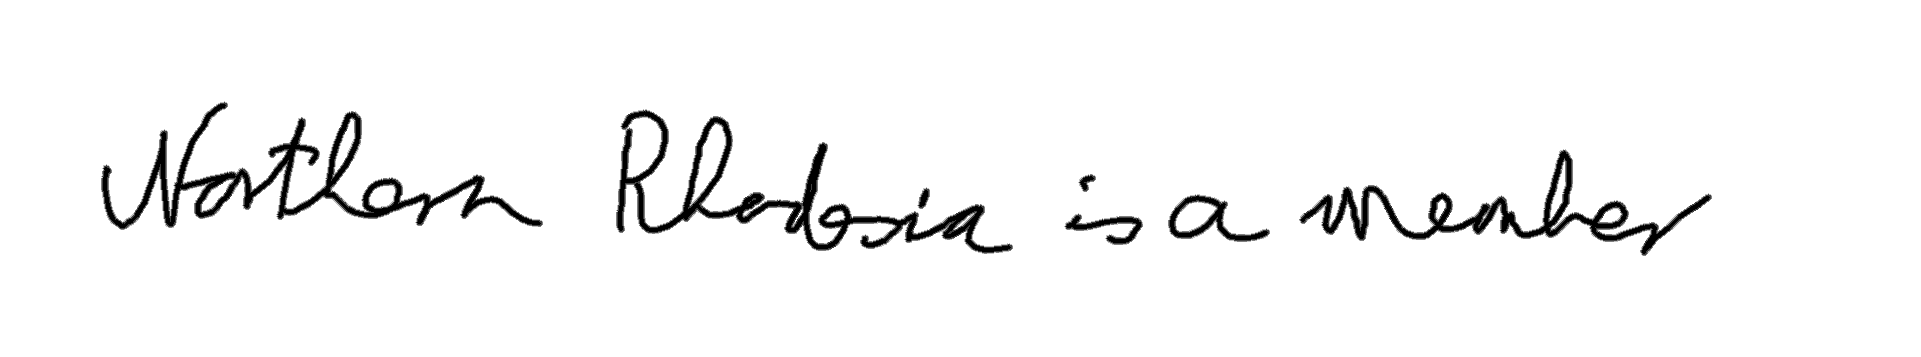 Northern Rhodesia is a member